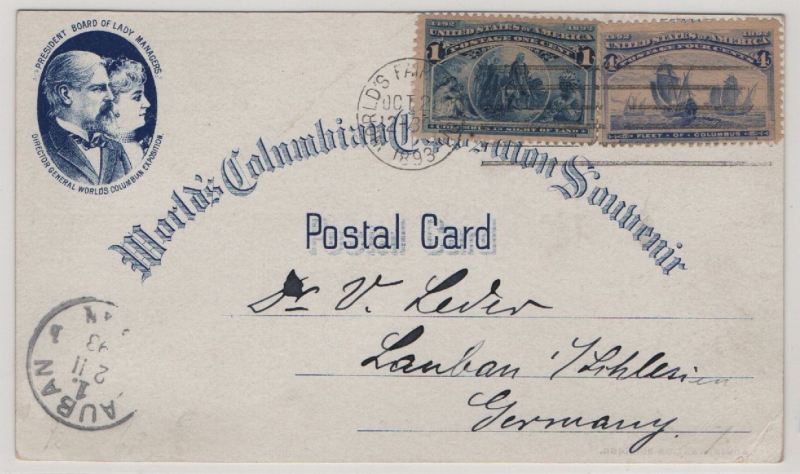 PRESIDENT BOARD OF LADY MANAGERS
DIRECTOR GENERAL WORLDS COLUMBIAN EXPOSITION.
1492 1892
UNITED STATES OF AMERICA
POSTAGE ONE CENT
1 1
COLUMBUS IN SIGHT OF LAND
1492 1892
UNITED STATES OF AMERICA
POSTAGE FOUR CENTS
4 4
FLEET OF COLUMBUS
WORLD'S FAIR
OCT 2
1893
World's Columbian Exposition Souvenir
Postal Card
Dr V. Leder
Lauban i/Schlesien
Germany.
LAUBAN
2 11
93